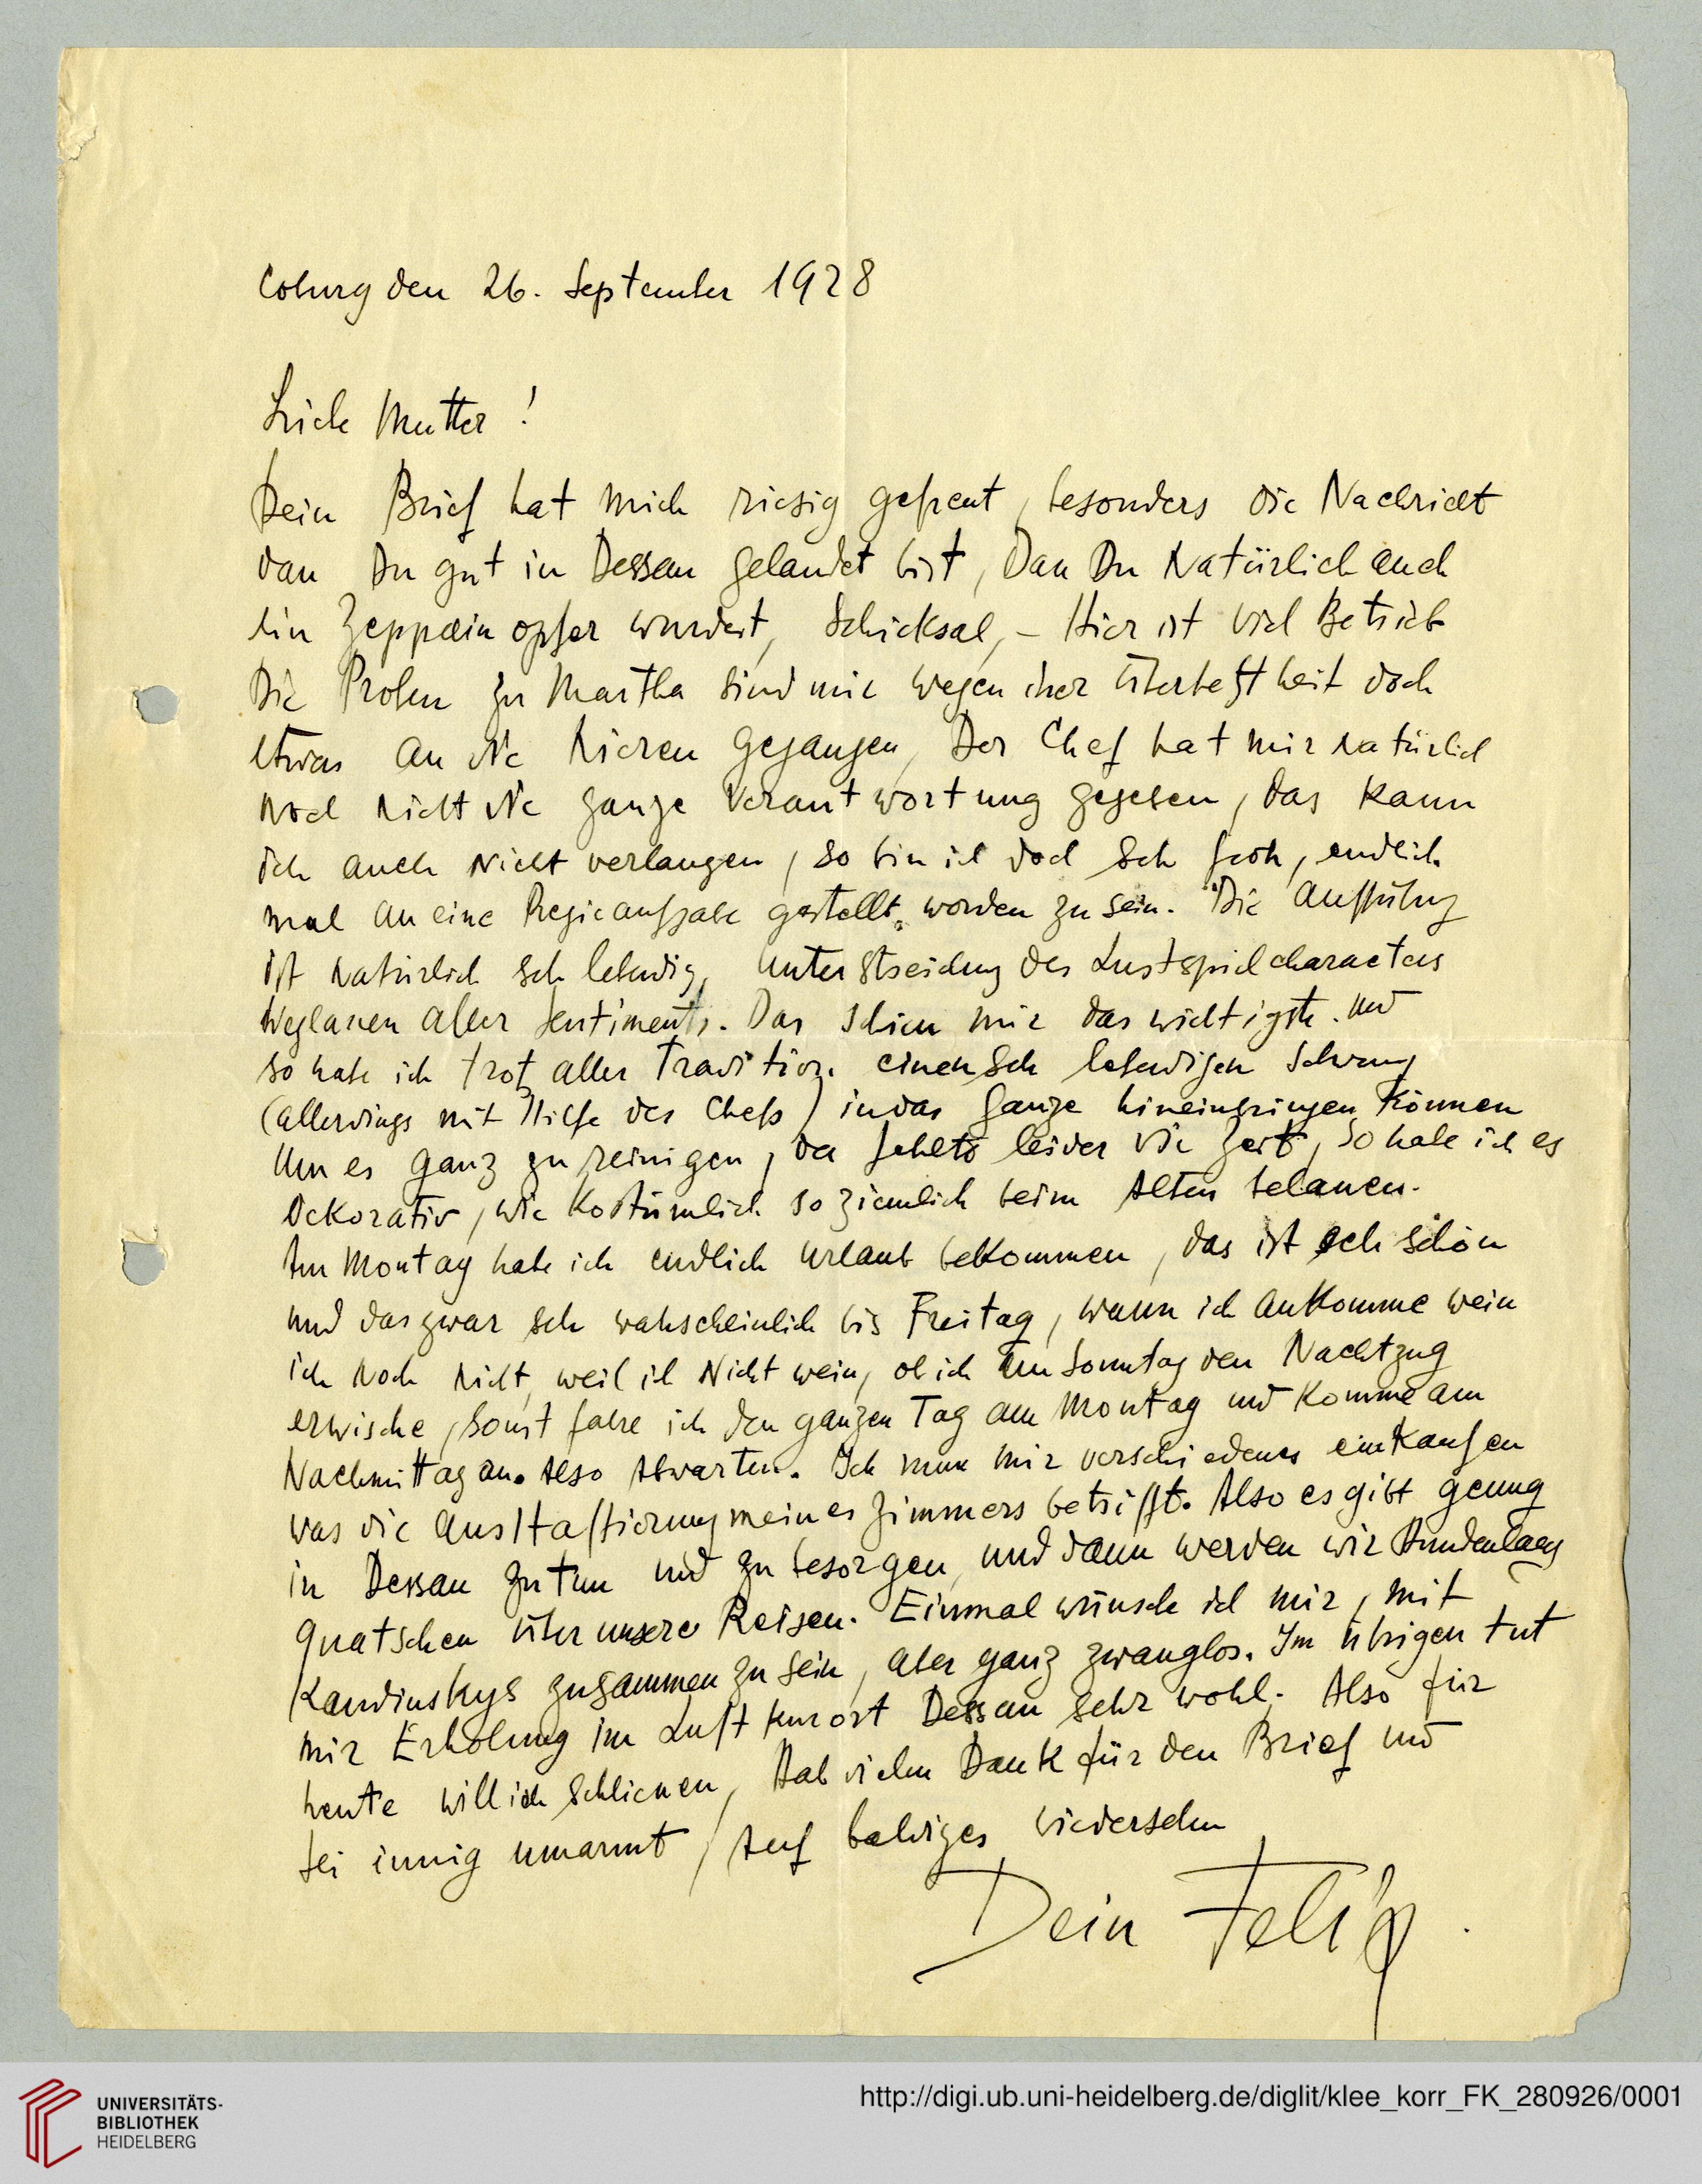 Coburg den 26. September 1928
Liebe Mutter!
Dein Brief hat mich riesig gefreut, besonders die Nachricht
dass Du gut in Dessau gelandet bist, dass Du natürlich auch
ein Zeppelin opfer wurdest, Schicksal, – Hier ist viel Betrieb
Die Proben zu Martha sind mir wegen ihrer Überhetztheit doch
etwas an die Nieren gegangen, Der Chef hat mir natürlich
noch nicht die ganze Verantwortung gegeben, das kann
ich auch nicht verlangen, so bin ich doch seh froh, endlich
mal an eine Regieaufgabe gestellt worden zu sein. Die Aufführung
ist natürlich seh lebendig, Unterstreichung des Lustspielcharacters
Weglassen aller Sentiments. Das schien mir das wichtigste. und
so habe ich trotz aller Tradition einen seh lebendigen Schwung
(allerdings mit Hilfe des Chefs) in das ganze hineinbringen können
Um es ganz zu reinigen, da fehlte leider die Zeit, so habe ich es
Dekorativ, wie Kostümlich so ziemlich beim Alten belassen.
Am Montag habe ich endlich Urlaub bekommen, das ist seh schön
und das zwar seh wahscheinlich bis Freitag, wann ich ankomme weiss
ich noch nicht, weil ich nicht weiss, ob ich am Sonntag den Nachtzug
erwische, sonst fahre ich den ganzen Tag am Montag und komme am
Nachmittag an. Also Abwarten. Ich muss mir verschiedenes einkaufen
was die Ausstaffierung meines Zimmers betrifft. Also es gibt genug
in Dessau zu tun und zu besorgen, und dann werden wir Stundenlang
quatschen über unsere Reisen. Einmal wünsche ich mir, mit
Kandinskys zusammen zu sein, aber ganz zwanglos. Im übrigen tut
mir Erholung im Luftkurort Dessau sehr wohl. Also für
heute will ich schliessen, Hab vielen Dank für den Brief und
sei innig umarmt, Auf baldiges Wiedersehn
Dein Felix.
UNIVERSITÄTS-
BIBLIOTHEK
HEIDELBERG
http://digi.ub.uni-heidelberg.de/diglit/klee_korr_FK_280926/0001